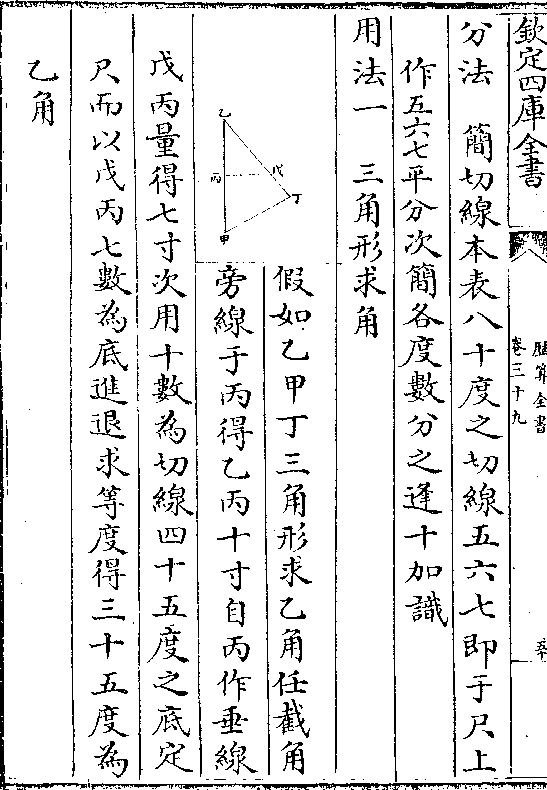 欽定四庫全書
曆算全書
卷三十九
分法　簡切線本表八十度之切線五六七即于尺上
作五六七平分次簡各度數分之逢十加識
用法一　三角形求角
乙
丙
戊
丁
甲
假如乙甲丁三角形求乙角任截角
旁線于丙得乙丙十寸自丙作垂線
戊丙量得七寸次用十數為切線四十五度之底定
尺而以戊丙七數為底進退求等度得三十五度為
乙角